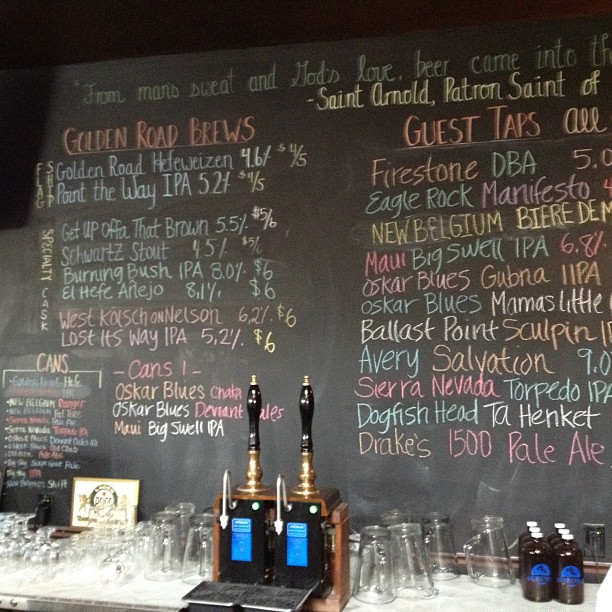 "From mans sweat and God's love, beer came into th
-Saint Arnold, Patron Saint of
GOLDEN ROAD BREWS
FLAG
SHIP
Golden Road Hefeweizen 4.6% $4/5
Point the Way IPA 5.2% $4/5
SPECIALTY
Get Up Offa That Brown 5.5% $5/6
Schwartz Stout 4.5% $5/6
Burning Bush IPA 8.0% $6
El Hefe Añejo 8.1% $6
CASK
West Kölsch on Nelson 6.2% $6
Lost Its Way IPA 5.2% $6
GUEST TAPS all
Firestone DBA 5.0
Eagle Rock Manifesto 4
NEW BELGIUM BIERE DE M
Maui Big Swell IPA 6.8%
Oskar Blues Gubna IIPA
Oskar Blues Mamas Little
Ballast Point Sculpin I
Avery Salvation 9.0
Sierra Nevada Torpedo IPA
Dogfish Head Ta Henket
Drake's 1500 Pale Ale
CANS
Hefe
IPA
NEW BELGIUM Ranger
NEW BELGIUM Fat Tire
Sierra Nevada Pale Ale
Sierra Nevada Torpedo IPA
Oskar Blues Dales Pale Ale
Oskar Blues Old Chub
Pale Ale
Big Sky Scape Goat Pale
Big Sky IPA
New Belgium Shift
- Cans! -
Oskar Blues Chaka
Oskar Blues Deviant Dales
Maui Big Swell IPA